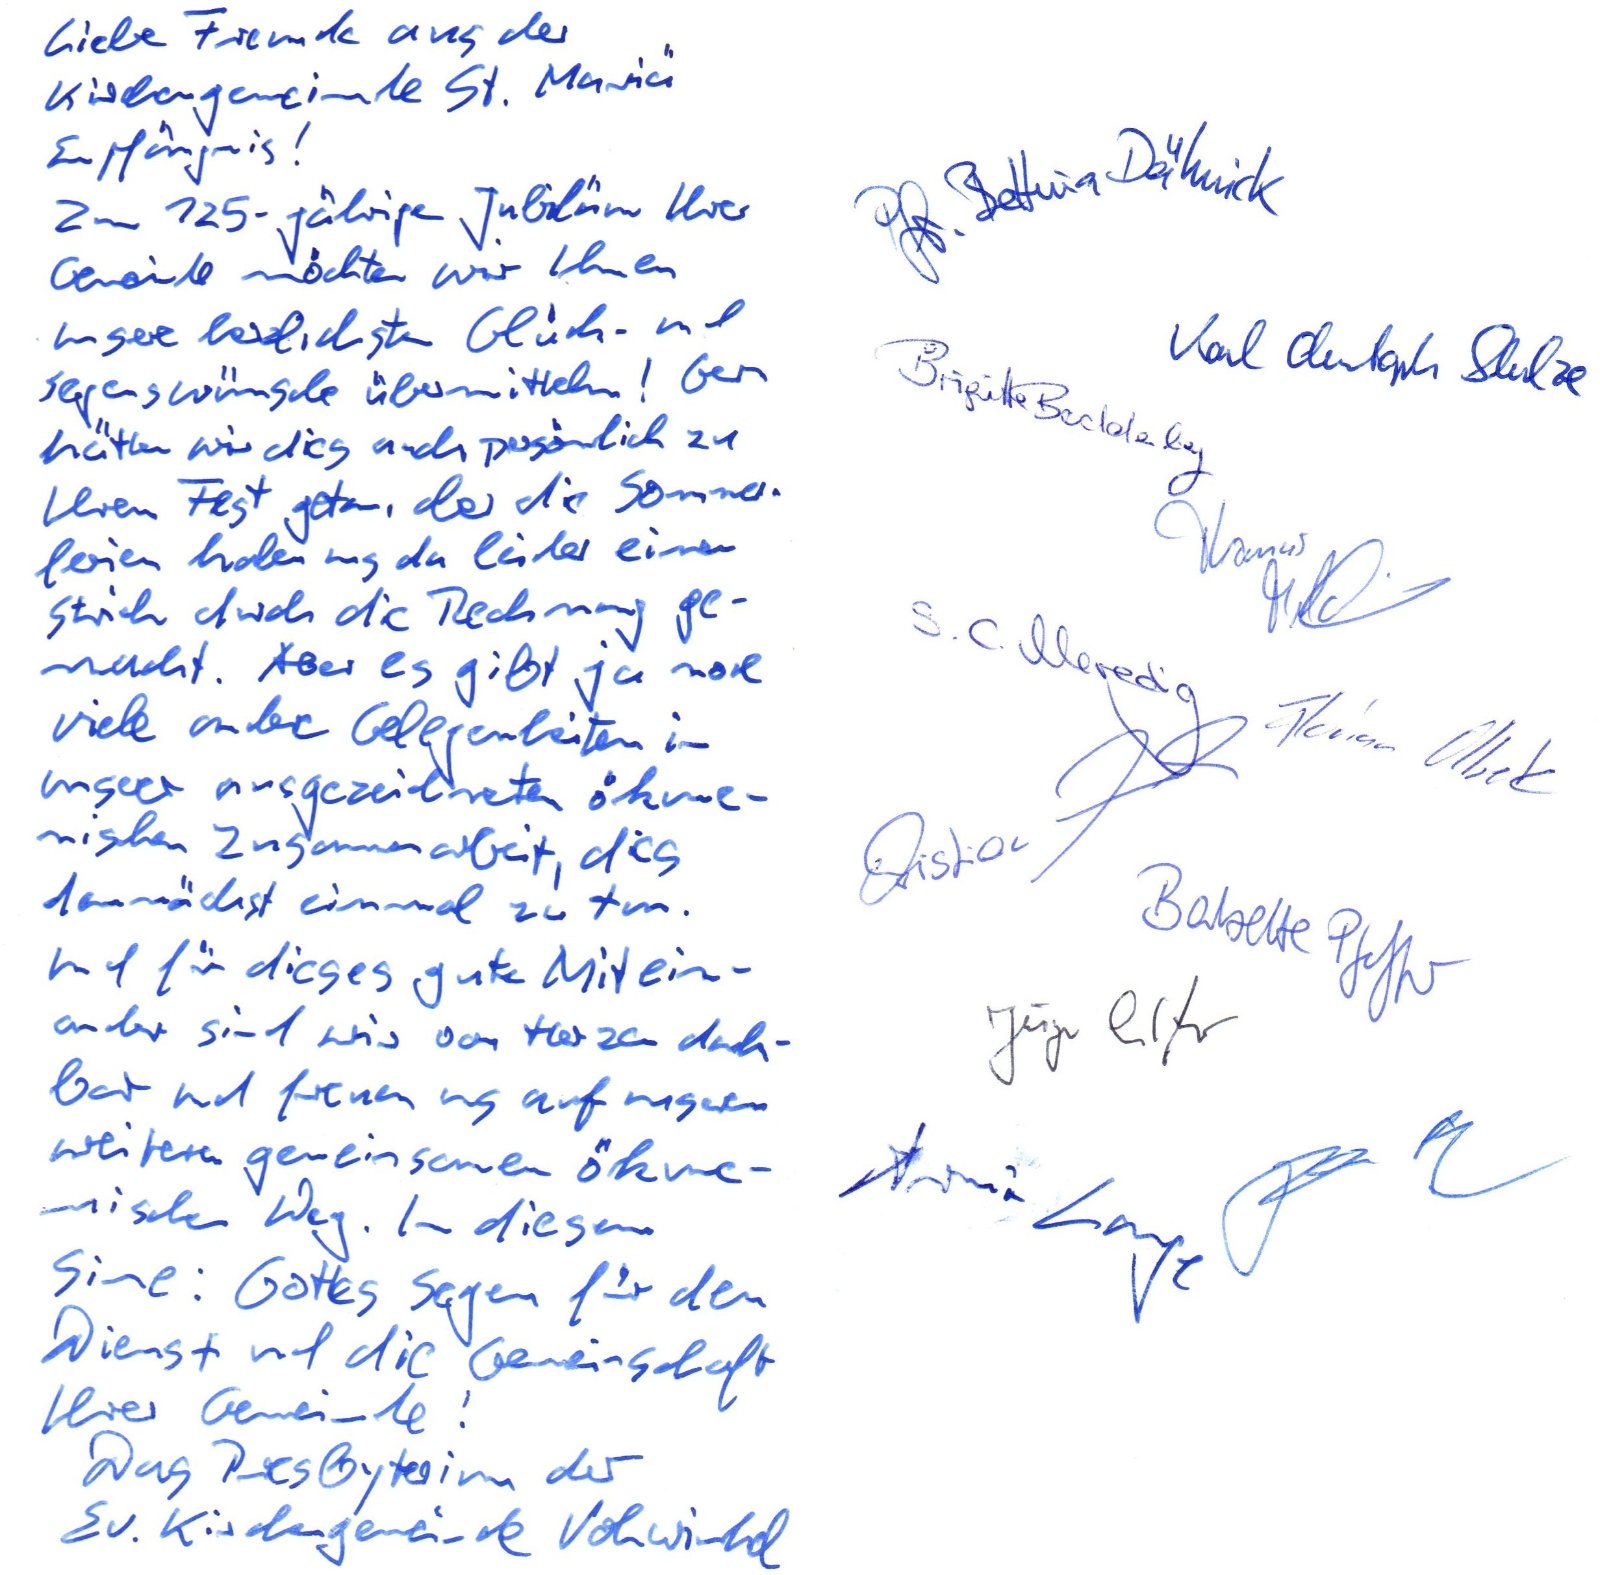 Liebe Freunde aus der
Kirchengemeinde St. Mariä
Empfängnis!
Zum 125-jährigen Jubiläum Ihrer
Gemeinde möchten wir Ihnen
unsere herzlichsten Glück- und
Segenswünsche übermitteln! Gern
hätten wir dies auch persönlich zu
Ihrem Fest getan, aber die Sommer-
ferien haben uns da leider einen
Strich durch die Rechnung ge-
macht. Aber es gibt ja noch
viele andere Gelegenheiten in
unserer ausgezeichneten ökume-
nischen Zusammenarbeit, dies
demnächst einmal zu tun.
Und für dieses gute Mitein-
ander sind wir von Herzen dank-
bar und freuen uns auf unseren
weiteren gemeinsamen ökume-
nischen Weg. In diesem
Sinne: Gottes Segen für den
Dienst und die Gemeinschaft
Ihrer Gemeinde!
Das Presbyterium der
Ev. Kirchengemeinde Vohwinkel
Pfr. Bettina Dähnick
Karl Christoph Schulze
Brigitte
S. C. Meredig
Florian
Christian
Babette
Jürgen
Lange